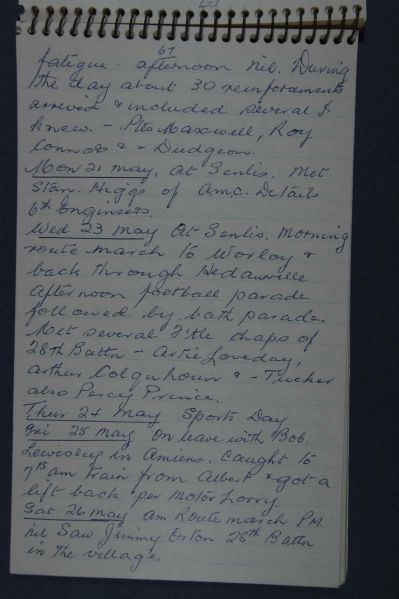 67
fatigue - afternoon nil. During
the day about 30 reinforcements
arrived & included several I
knew. - Ptes Maxwell, Roy
Connors & - Dudgeon.
Mon 21 May. At Senlis. Met
Stan. Higgs of A.M.C. Details
6th Engineers.
Wed 23 May At Senlis. Morning
route march to Warloy &
back through Hedauville
afternoon football parade
followed by bath parade.
Met several F'tle chaps of
28th Battn - Artie Loveday,
Arthur Colquhoun & - Tucker
also Percy Prince.
Thur 24 May Sports Day
Fri 25 May on leave with Bob.
in Amiens. Caught to
7.15 am train from Albert & got a
lift back per motor lorry.
Sat 26 May am Route march PM
nil Saw Jimmy Eston 28th Battn
in the village.